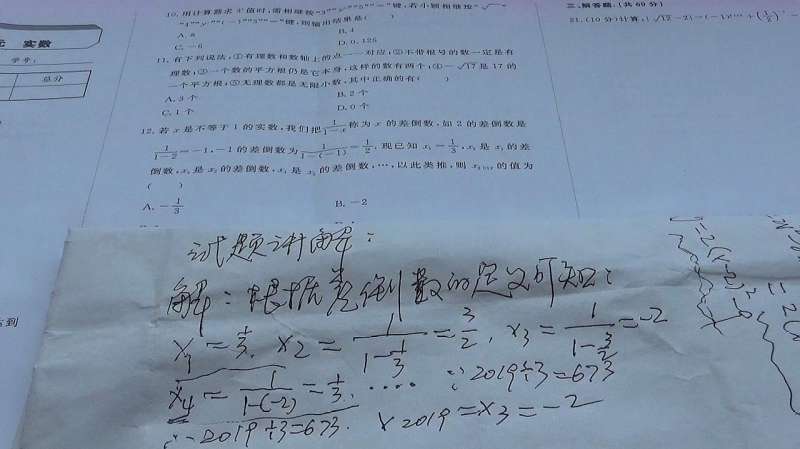 实数
学号:
总分
10. 用计算器求 值时,需相继按“3”“ ”“5”“=”键,若小颖相继按“√”
“4”“ ”“(-)”“3”“=”键,则输出结果是( )
A. 8
B. 4
C. -6
D. 0.125
11. 有下列说法:①有理数和数轴上的点一一对应;②不带根号的数一定是有
理数;③一个数的平方根仍是它本身,这样的数有两个;④-√17是17的
一个平方根;⑤无理数都是无限小数,其中正确的有( )
A. 3个
B. 2个
C. 1个
D. 0个
12. 若x是不等于1的实数,我们把1/(1-x)称为x的差倒数,如2的差倒数是
1/(1-2)=-1,-1的差倒数为1/(1-(-1))=1/2,现已知x₁=1/3,x₂是x₁的差
倒数,x₃是x₂的差倒数,x₄是x₃的差倒数,…,以此类推,则x₂₀₁₉的值为
( )
A. -1/3
B. -2
三、解答题:(共60分)
21. (10分)计算:
试题讲解:
解:根据差倒数的定义可知:
x₁=1/3, x2=1/(1-1/3)=3/2, x3=1/(1-3/2)=-2
x4=1/(1-(-2))=1/3, …. ∵2019÷3=673
∴2019÷3=673. x2019=x3=-2